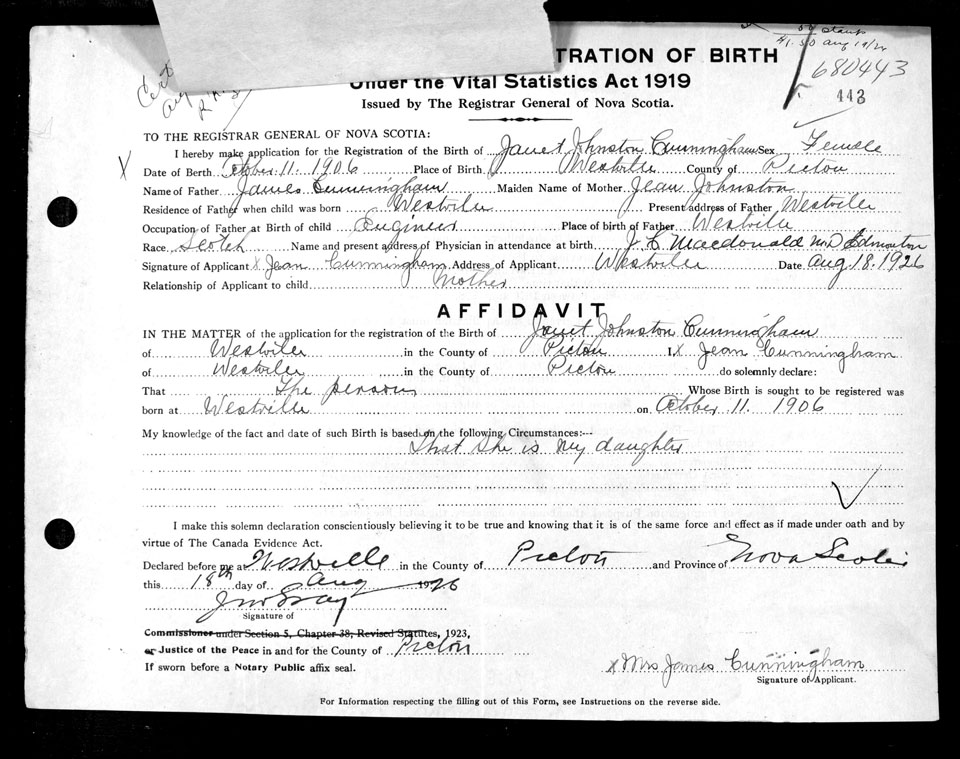 stamp
$1.50 Aug 19/26
680443
443
Cert
Aug
TRATION OF BIRTH
Under the Vital Statistics Act 1919
Issued by The Registrar General of Nova Scotia.
TO THE REGISTRAR GENERAL OF NOVA SCOTIA:
I hereby make application for the Registration of the Birth of Janet Johnston Cunningham Sex Female
X Date of Berth October 11. 1906 Place of Birth Westville County of Pictou
Name of Father James Cunningham Maiden Name of Mother Jean Johnston
Residence of Father when child was born Westville Present address of Father Westville
Occupation of Father at Birth of child Engineer Place of birth of Father Westville
Race Scotch Name and present address of Physician in attendance at birth J. C. Macdonald M.D Edmonton
Signature of Applicant x Jean Cunningham Address of Applicant Westville Date Aug. 18. 1926
Relationship of Applicant to child Mother
AFFIDAVIT
IN THE MATTER of the application for the registration of the Birth of Janet Johnston Cunningham
of Westville in the County of Pictou I, x Jean Cunningham
of Westville in the County of Pictou do solemnly declare:
That The person Whose Birth is sought to be registered was
born at Westville on October 11. 1906
My knowledge of the fact and date of such Birth is based on the following Circumstances:---
That she is my daughter
I make this solemn declaration conscientiously believing it to be true and knowing that it is of the same force and effect as if made under oath and by
virtue of The Canada Evidence Act.
Declared before me at Westville in the County of Pictou and Province of Nova Scotia
this 18th day of Aug 1926
Jno Gray
Signature of
Commissioner under Section 5, Chapter 38, Revised Statutes, 1923,
or Justice of the Peace in and for the County of Pictou
If sworn before a Notary Public affix seal.
x Mrs James Cunningham
Signature of Applicant.
For Information respecting the filling out of this Form, see Instructions on the reverse side.